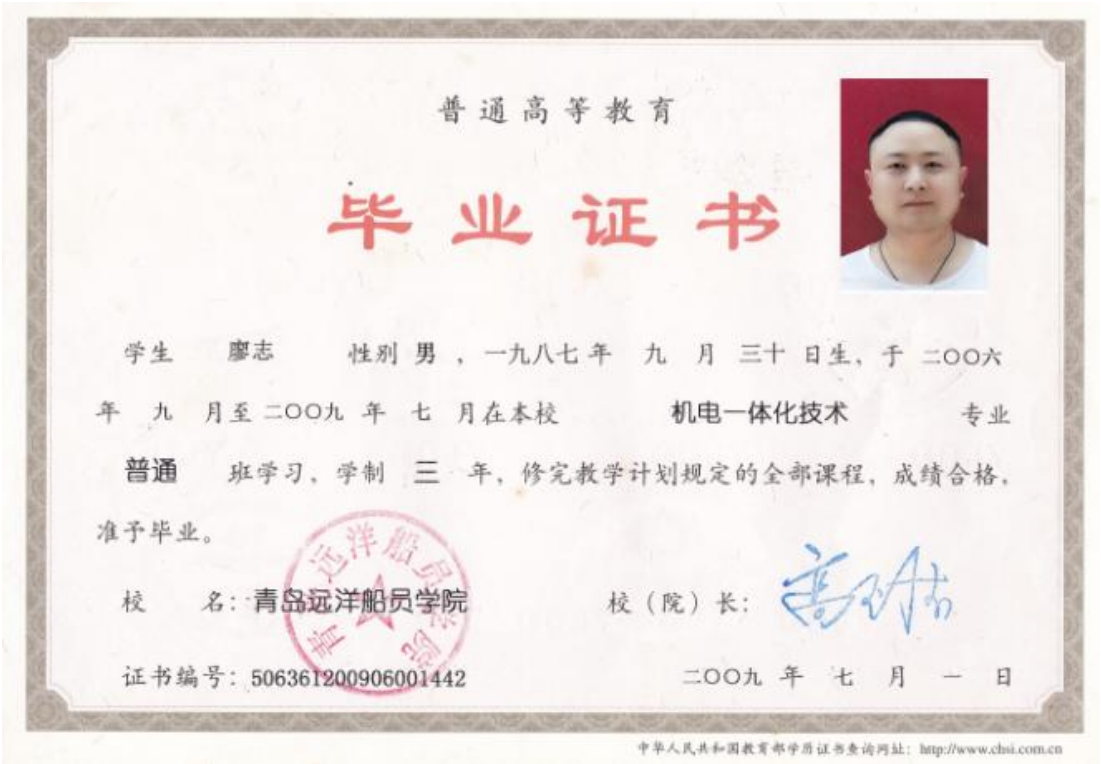 普通高等教育
毕业证书
学生 廖志 性别 男 ，一九八七年 九 月 三十 日生，于 二〇〇六
年 九 月至 二〇〇九 年 七 月在本校 机电一体化技术 专业
普通 班学习，学制 三 年，修完教学计划规定的全部课程，成绩合格，
准予毕业。
校 名：青岛远洋船员学院 校（院）长：
青岛远洋船员学院
证书编号：506361200906001442 二〇〇九 年 七 月 一 日
中华人民共和国教育部学历证书查询网址：http://www.chsi.com.cn